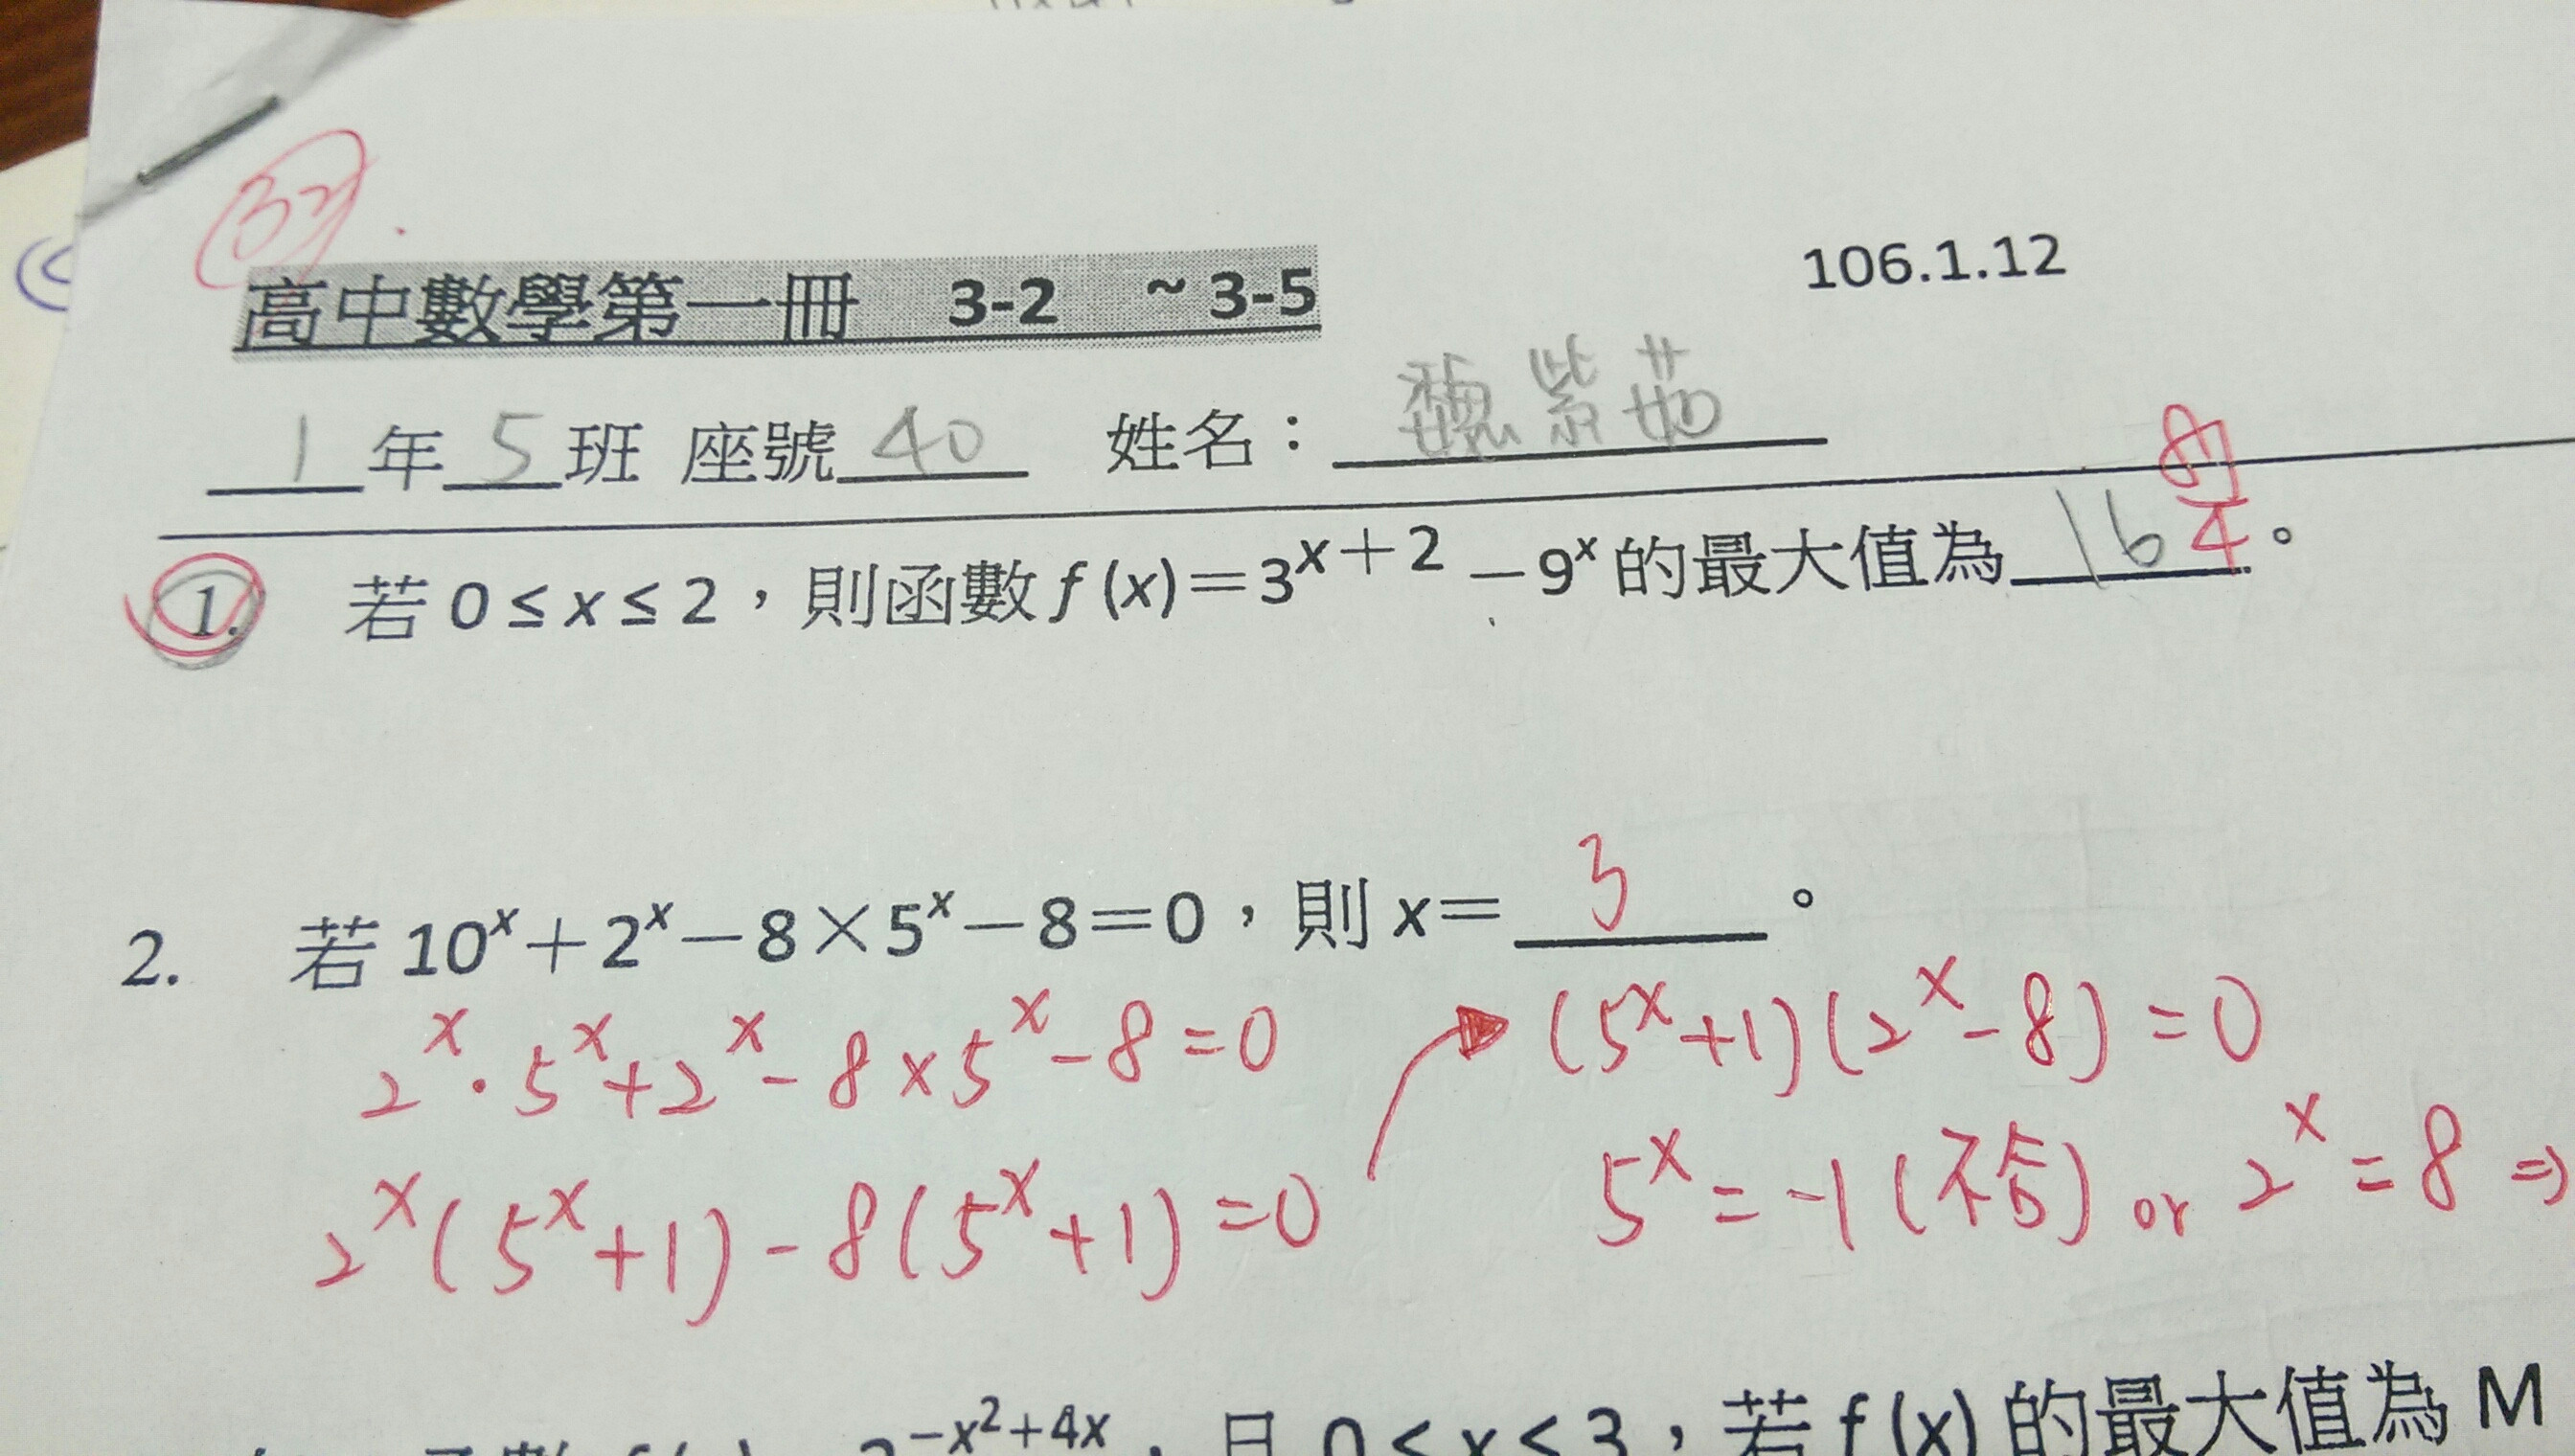 高中數學第一冊 3-2 ~ 3-5
106.1.12
1 年 5 班 座號 40 姓名： 魏紫茹
1. 若 0 ≤ x ≤ 2，則函數 f (x)＝3^{x＋2} －9^x 的最大值為 16 81/4 。
2. 若 10^x＋2^x－8×5^x－8＝0，則 x＝ 3 。
2^x · 5^x + 2^x - 8 × 5^x - 8 = 0
2^x ( 5^x + 1 ) - 8 ( 5^x + 1 ) = 0
( 5^x + 1 ) ( 2^x - 8 ) = 0
5^x = -1 (不合) or 2^x = 8 ⇒
-x²+4x ，且 0 ≤ x ≤ 3，若 f (x) 的最大值為 M